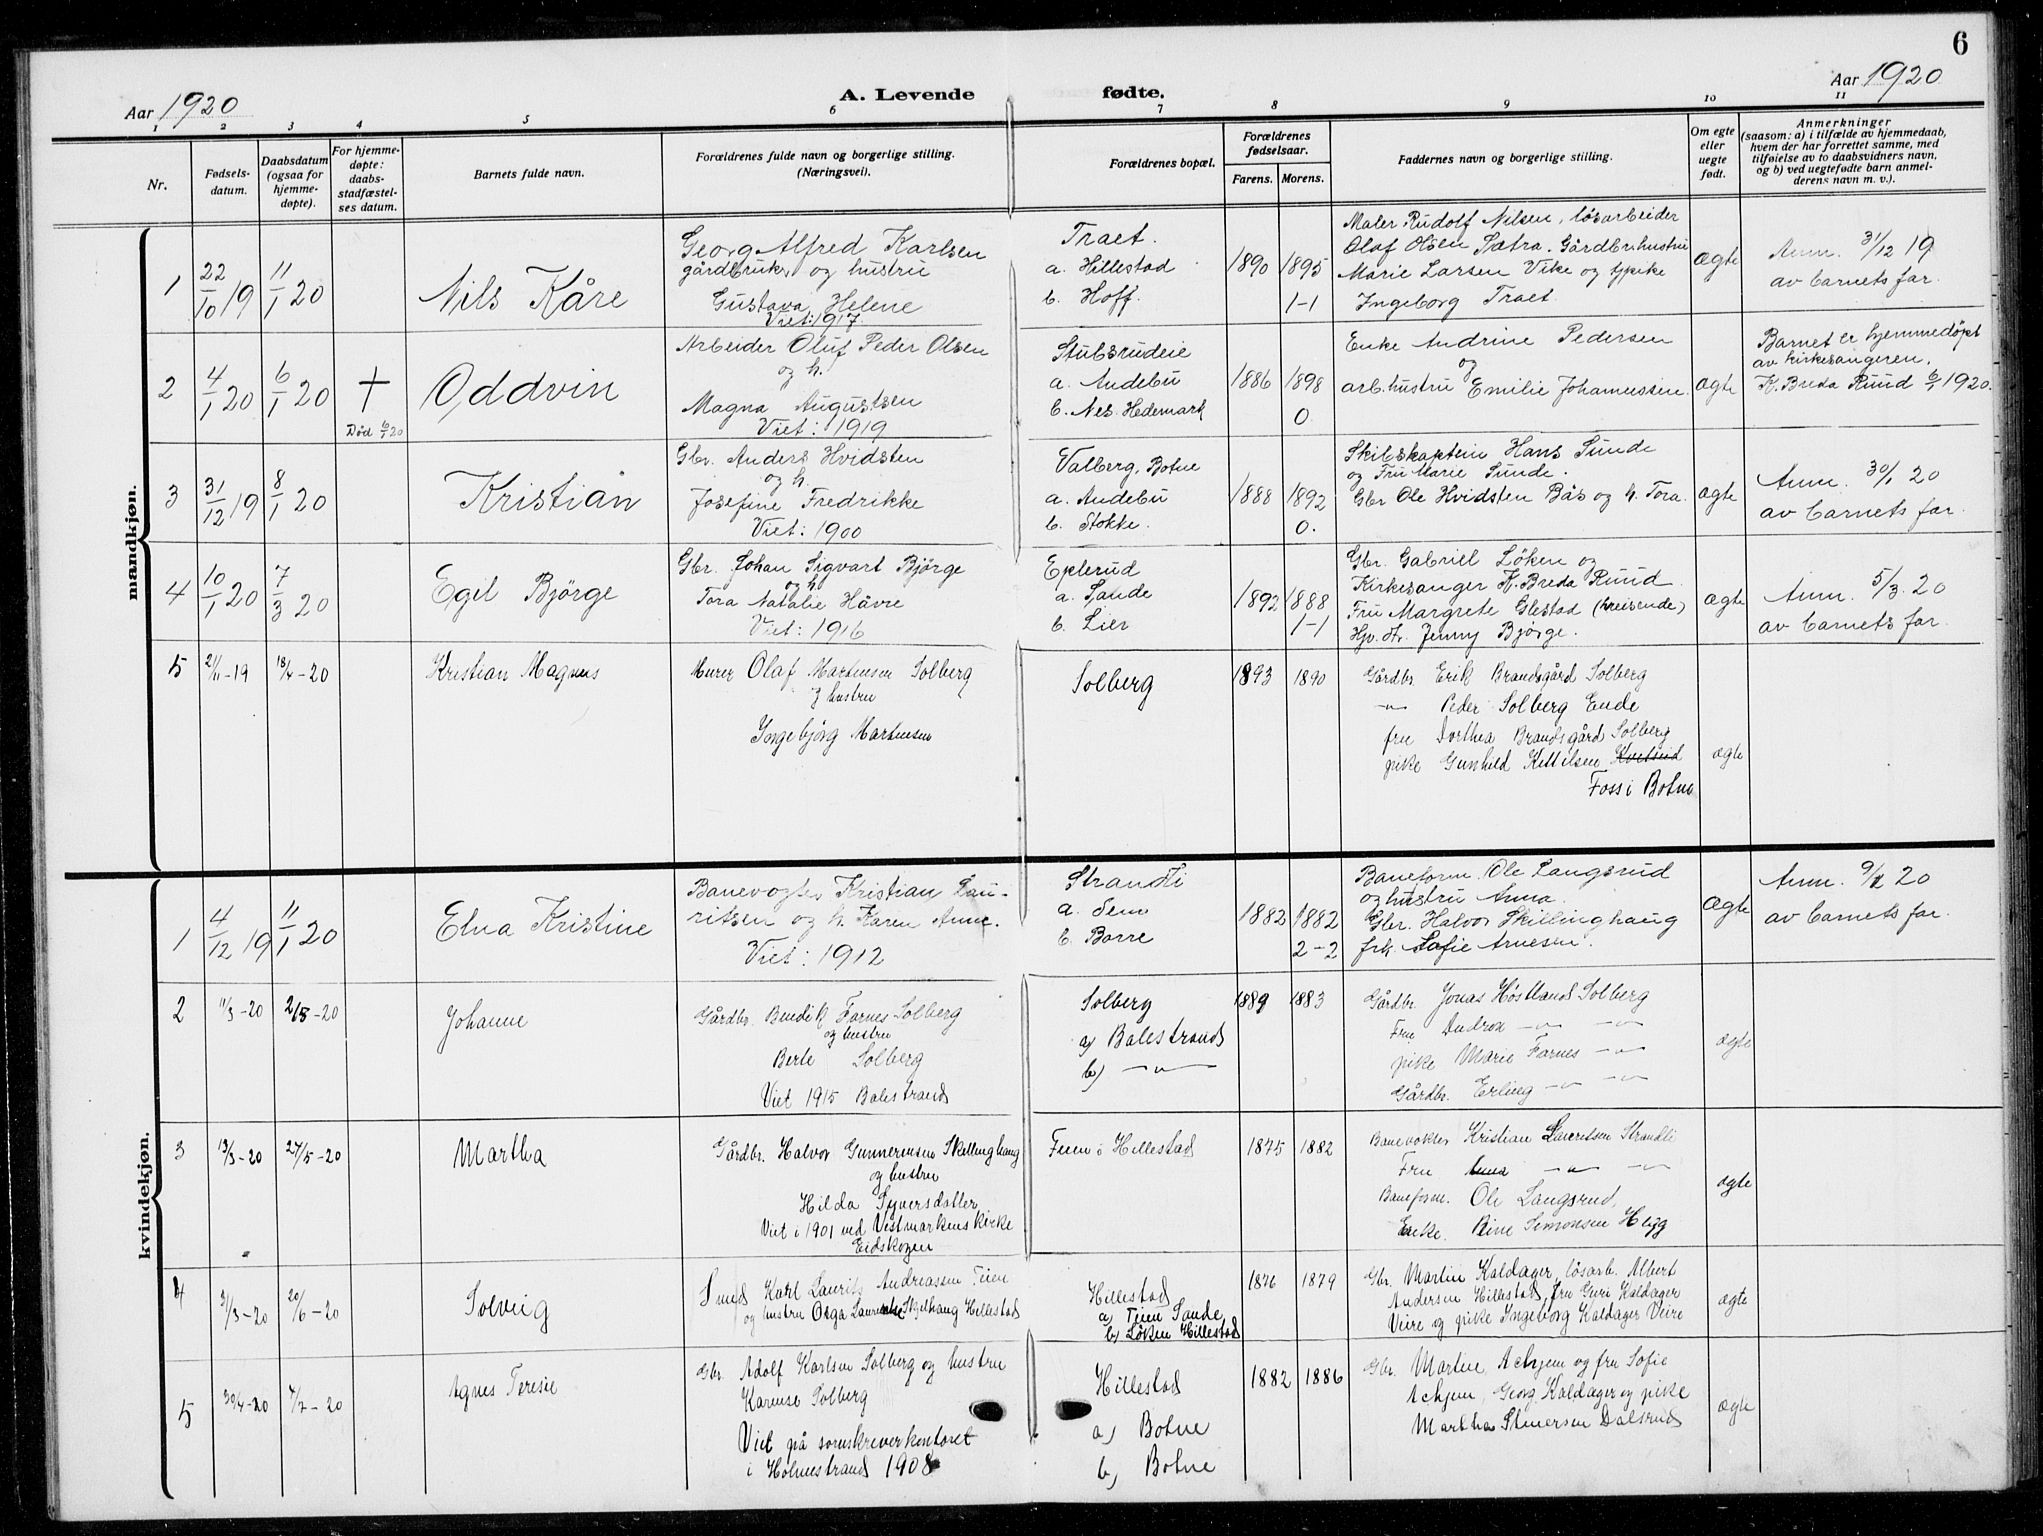 6
Aar 1920
A. Levende fødte.
Aar 1920
1 2 3 4 5 6 7 8 9 10 11
Nr.
Fødsels-
datum.
Daabsdatum
(ogsaa for
hjemme-
døpte).
For hjemme-
døpte:
daabs-
stadfæstel-
ses datum.
Barnets fulde navn.
Forældrenes fulde navn og borgerlige stilling.
(Næringsvei).
Forældrenes bopæl.
Forældrenes
fødselsaar.
Farens. Morens.
Faddernes navn og borgerlige stilling.
Om egte
eller
uegte
født.
Anmerkninger
(saasom: a) i tilfælde av hjemmedaab,
hvem der har forrettet samme, med
tilføielse av to daabsvidners navn,
og b) ved uegtefødte barn anmel-
derens navn m. v.).
mandkjøn.
1
22/10 19
11/1 20
Nils Kåre
Georg Alfred Karlsen
gårdbruker og hustru
Gustava Helene
Viet: 1917
Traet.
a. Hillestad
b. Hoff.
1890 1895
1-1
Maler Rudolf Nilsen, løsarbeider
Olaf Olsen Sætra. Gårdbr.hustru
Marie Larsen Vike og pike
Ingeborg Traet.
ægte
Anm. 31/12 19
av barnets far.
2
4/1 20
6/1 20
†
Død 6/1 20
Oddvin
Arbeider Oluf Peder Olsen
og h.
Magna Augustsen
Viet: 1919
Stubsrudeie
a. Andebu
b. Nes. Hedemark
1886 1898
0
Enke Andrine Pedersen
og
arb.hustru Emilie Johannessen.
ægte
Barnet er hjemmedøpt
av kirkesangeren,
K. Breda Ruud 6/1 1920.
3
31/12 19
8/1 20
Kristian
Gbr. Anders Hvidsten
og h.
Josefine Fredrikke
Viet: 1900
Valberg, Botne
a. Andebu
b. Stokke.
1888 1892
0.
Skibskaptein Hans Sunde
og Fru Marie Sunde.
Gbr Ole Hvidsten Bås og h. Tora.
ægte
Anm. 30/1 20
av barnets far.
4
10/1 20
7/3 20
Egil Bjørge
Gbr. Johan Sigvart Bjørge
og h
Tora Natalie Håvre
Viet: 1916
Eplerud
a. Sande
b. Lier
1892 1888
1-1
Gbr. Gabriel Løken og
Kirkesanger K. Breda Ruud
Fru Margrete Glestad
Jenny Bjørge.
ægte
Anm. 5/3. 20
av barnets far.
5
2/11-19
18/4-20
Kristian Magnus
Murer Olaf Martinsen Solberg
og hustru
Ingebjørg Martinsen
Solberg
1893 1890
Gårdbr. Erik Brandsgård Solberg
-"- Peder Solberg Ende
fru Dorthea Brandsgård Solberg
pike Gunhild Kittilsen
Foss i Botne
ægte
kvindekjøn.
1
4/12 19
11/1 20
Elna Kristine
Banevogter Kristian Lau-
ritsen og h. Karen Anne.
Viet: 1912
Strandli
a. Sem
b. Borre
1882 1882
2-2
Baneform. Ole Langsrud
og hustru Anna.
Gbr. Halvor Skillinghaug
frk. Sofie Arnesen.
ægte
Anm. 20
av barnets far.
2
11/3-20
-20
Johanne
Gårdbr. Bendik Farnes Solberg
og hustru
Berte Solberg
Viet 1915 Balestrand
Solberg
a) Balestrand
b) -"-
1889 1883
Gårdbr. Jonas Høstland Solberg
Fru -"- -"-
pike Marie Farnes -"-
Gårdbr. Erling -"- -"-
ægte
3
13/3-20
24/5-20
Martha
Gårdbr. Halvor Gunnerensen Skillinghaug
og hustru
Hilda Syversdatter
Viet i 1901 ved Vestmarkens kirke
Eidskogen
Teien i Hillestad
1875 1882
Banevokter Kristian Lauritsen Strandli
Fru Anna -"- -"-
Baneform. Ole Langsrud,
Enke. Simonsen
ægte
4
31/3-20
20/6-20
Solveig
Smed Karl Laurits Andreassen Teien
og hustru Hillestad
Hillestad
a) Teien Sande
b) Løken Hillestad
1876 1879
Gbr. Martin Kaldager, løsarb. Albert
Andersen Hillestad, fru Guri Kaldager
Veire og pike Ingeborg Kaldager Veire
ægte
5
30/4-20
4/7-20
Agnes Teresie
Gbr. Adolf Karlsen Solberg og hustru
Karense Solberg
Viet på sorenskriverkontoret
i Holmestrand 1908
Hillestad
a) Botne
b) Botne
1882 1886
Gbr. Martin Achjem og fru Sofie
Achjem, Georg Kaldager og pike
Martha Dalsrud
ægte